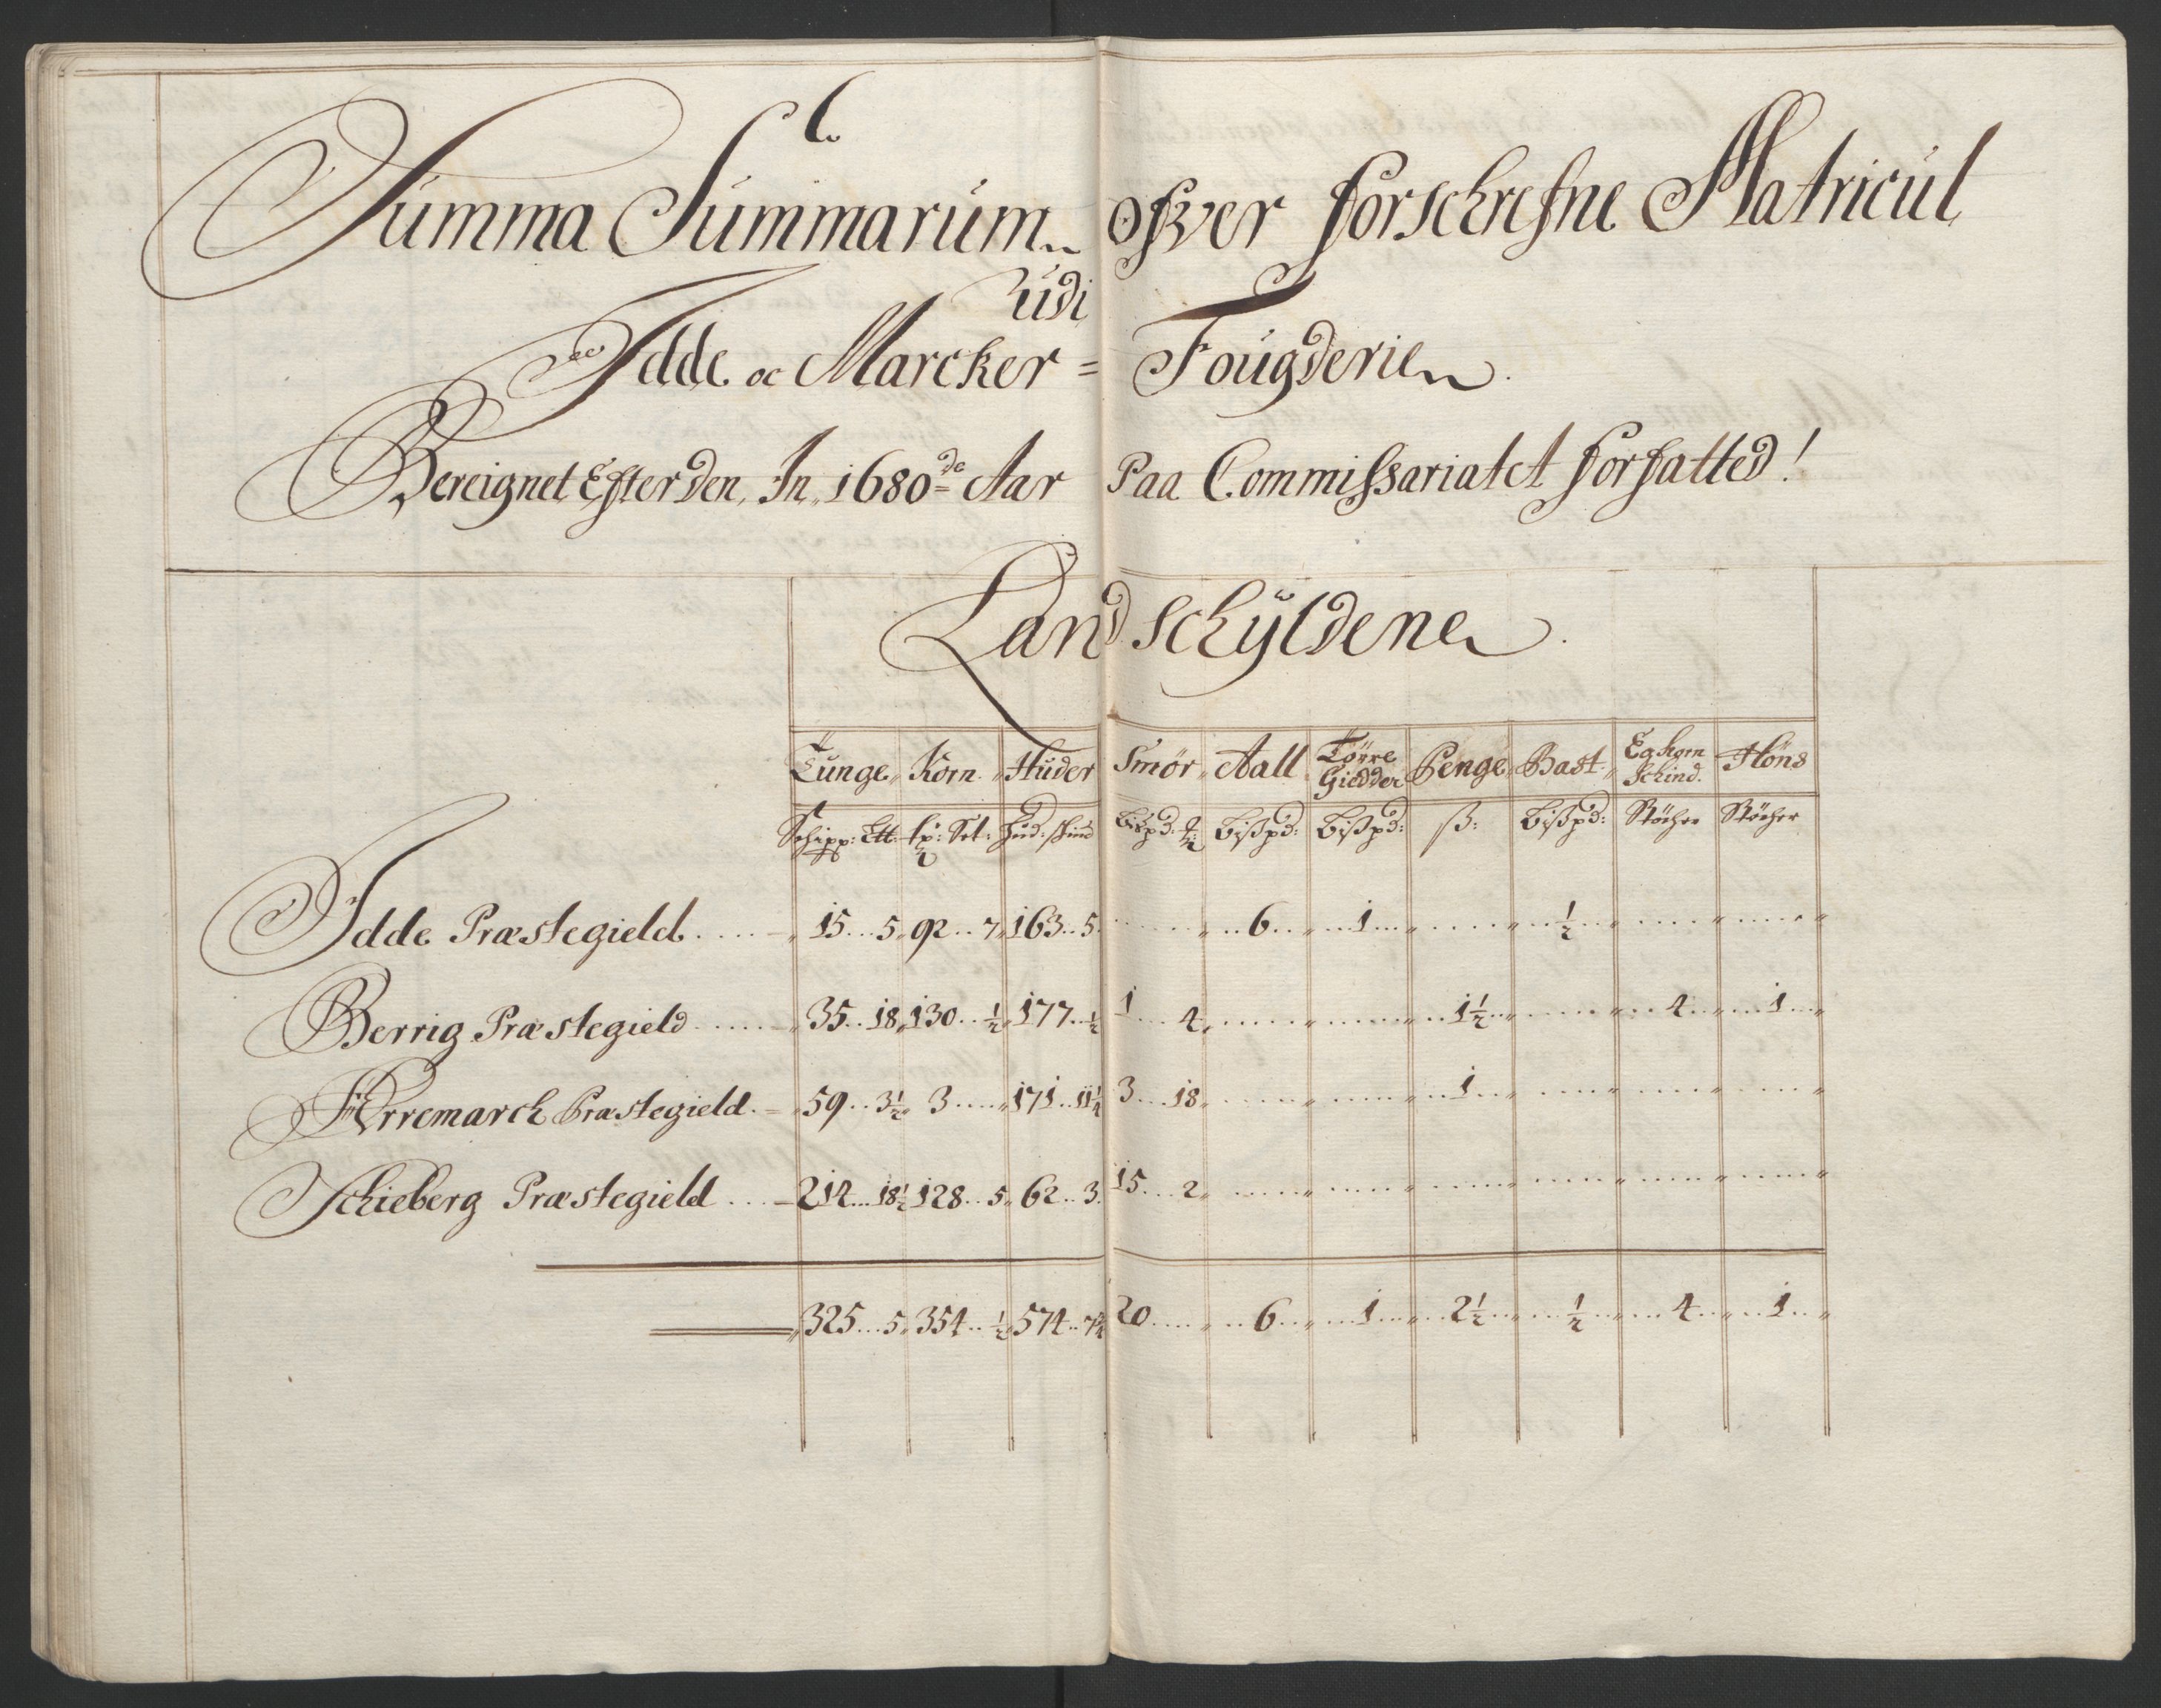 Summa Summarum ofver forschrefne Matricul
Udi
Idde oc Marcker = Fougderie
Bereignet Efter Den, In 1680de Aar Paa Commissariatet forfatted!
Landschÿldene
Tunge Korn Huder Smör Aall Törre Giedder Penge Bast Egkorn Schind. Höns
Schipp: Ltt: Set: Hud: skind Bißpd: Bißpd: Bißpd: ß: Bißpd: Stöcher Stöcher
Idde Præstegield 15 5 92 7 163 5 6 1 ½
Berrig Præstegield 35 18 130 ½ 177 ½ 1 4 1½ 4 1
Arremarch Præstegield 59 3½ 3 171 11¼ 3 18 1
Schieberg Præstegield 214 18½ 128 5 62 3 15 2
325 5 354 ½ 574 7¾ 20 6 1 2½ ½ 4 1